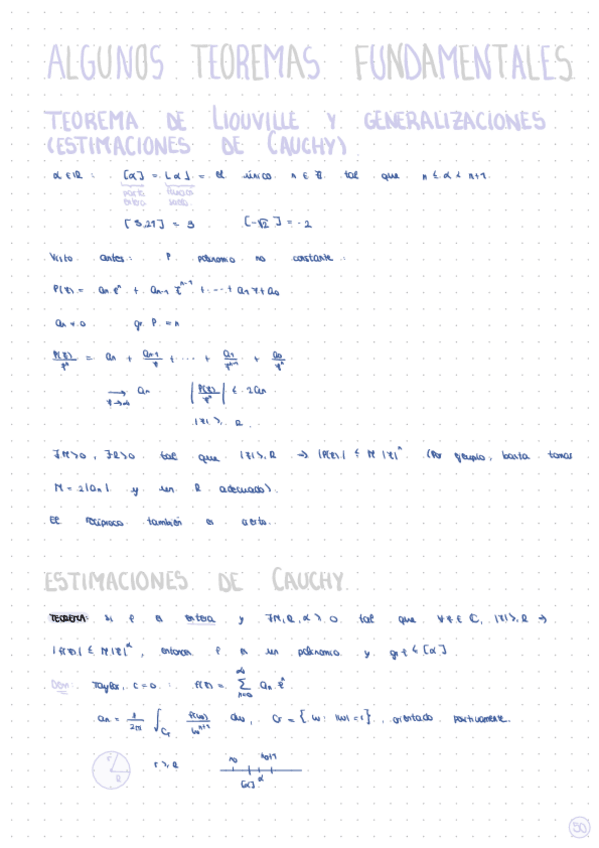 ALGUNOS TEOREMAS FUNDAMENTALES
TEOREMA DE LIOUVILLE Y GENERALIZACIONES
(ESTIMACIONES DE CAUCHY)
α ∈ ℝ : [α] = ⌊α⌋ = el único n ∈ ℤ tal que n ≤ α < n+1.
parte entera
[-√2] = -2
Visto antes: P polinomio no constante:
P(z) = aₙ zⁿ + aₙ₋₁ zⁿ⁻¹ + ... + a₁ z + a₀
aₙ ≠ 0 gr P = n
P(z)/zⁿ = aₙ + aₙ₋₁/z + ... + a₁/zⁿ⁻¹ + a₀/zⁿ
→ aₙ |P(z)/zⁿ| ≤ 2aₙ
z→∞ |z| ≥ R
∃M>0, ∃R>0 tal que |z| ≥ R → |P(z)| ≤ M |z|ⁿ (Por ejemplo, basta tomar
M = 2|aₙ| y un R adecuado).
El recíproco también es cierto.
ESTIMACIONES DE CAUCHY
TEOREMA: Si f es entera y ∃M, R, α ≥ 0 tal que ∀z ∈ ℂ, |z| ≥ R →
|f(z)| ≤ M|z|^α, entonces f es un polinomio y gr f ≤ [α].
Dem: Taylor, c=0 : f(z) = ∑ₙ₌₀^∞ aₙ zⁿ
aₙ = 1/2πi ∫_Cr f(w)/wⁿ⁺¹ dw, Cr = {w: |w| = r}, orientado positivamente.
r R r ≥ R n₀ n₀+1
[α] α
50